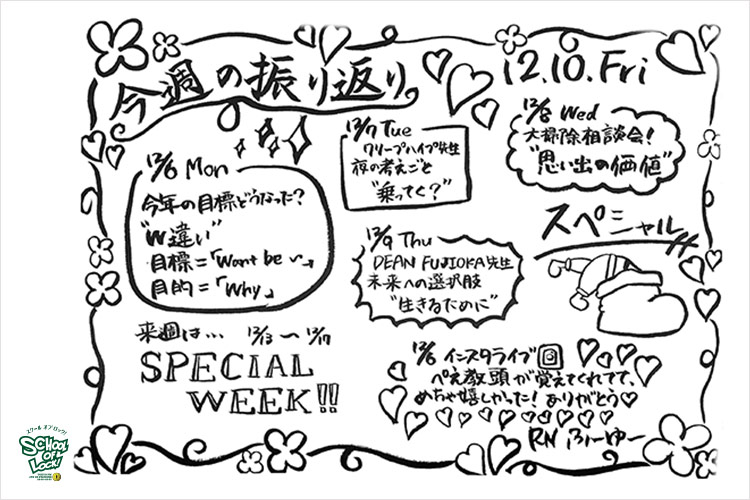 今週の振り返り
12.10.Fri
12/6 Mon
今年の目標どうなった?
"W違い"
目標=「Want be
目的=「Why」
12/7 Tue
クリープハイプ先生
夜の考えごと
"乗ってく?"
12/8 Wed
大掃除相談会!
"思い出の価値"
12/9 Thu
DEAN FUJIOKA先生
未来への選択肢
"生きるために"
スペシャル
来週は… 12/13〜12/17
SPECIAL
WEEK!!
12/6 インスタライブ
ぺえ教頭が覚えてくれてて、
めちゃ嬉しかった!ありがとう♡
RN ふーゆー
スクール オブ ロック!
SCHOOL
OF
LOCK!